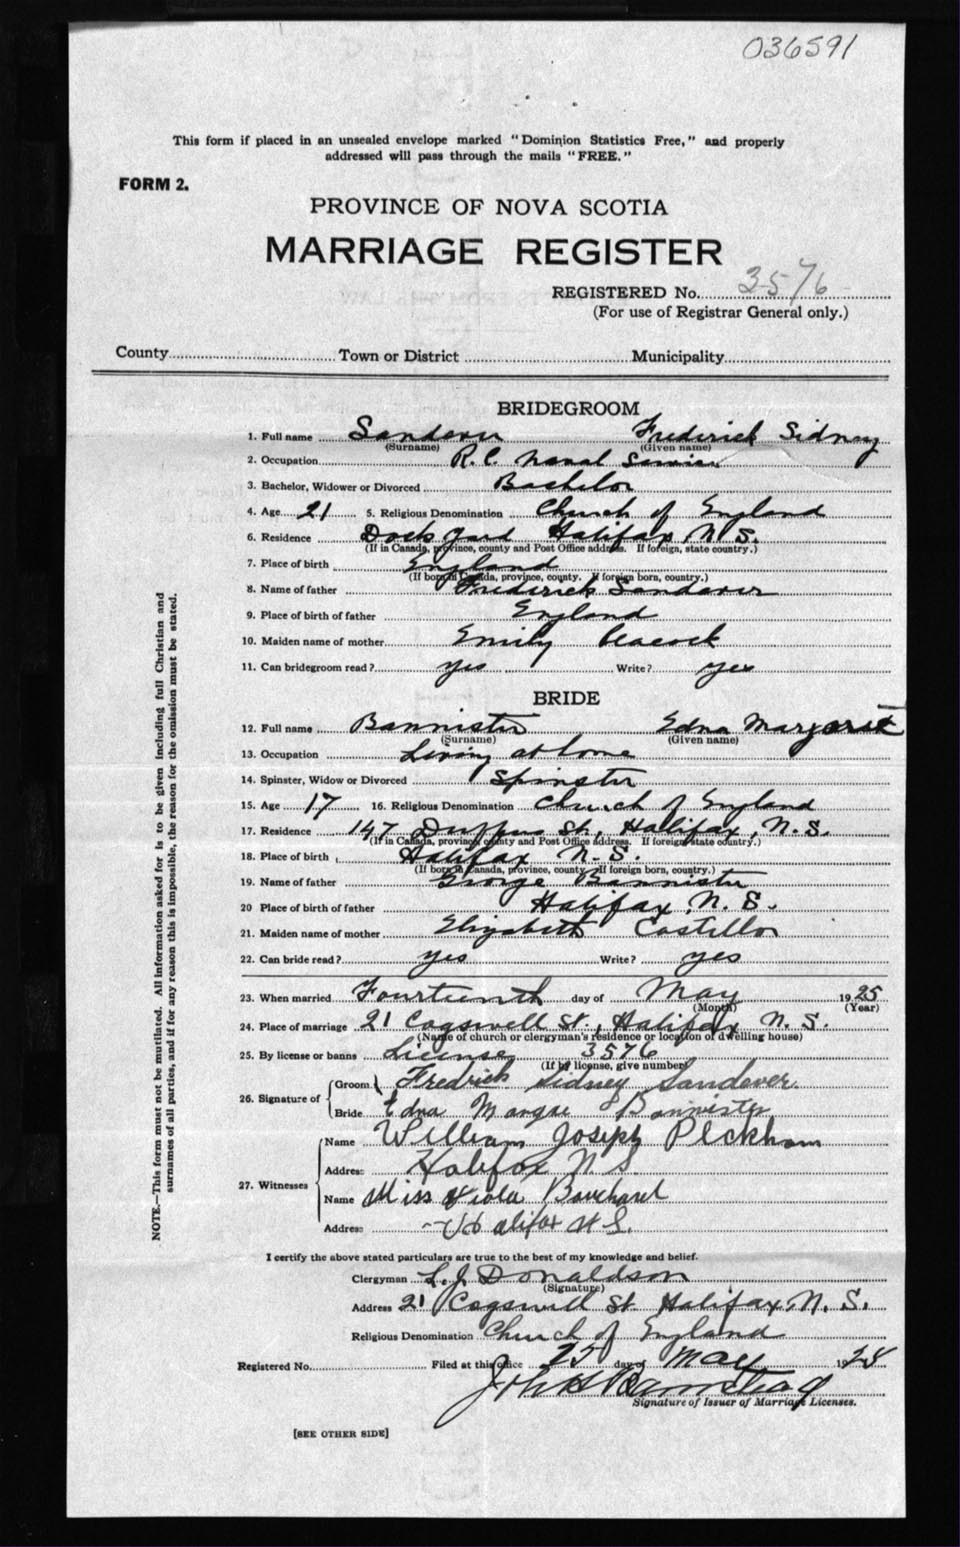 036591
This form if placed in an unsealed envelope marked "Dominion Statistics Free," and properly
addressed will pass through the mails "FREE."
FORM 2.
PROVINCE OF NOVA SCOTIA
MARRIAGE REGISTER
REGISTERED No. 3576
(For use of Registrar General only.)
County Town or District Municipality
BRIDEGROOM
1. Full name Sandever Frederick Sidney
(Surname) (Given name)
2. Occupation R.C. Naval Service
3. Bachelor, Widower or Divorced Bachelor
4. Age 21 5. Religious Denomination Church of England
6. Residence Dock Yard Halifax N.S.
(If in Canada, province, county and Post Office address. If foreign, state country.)
7. Place of birth England
(If born in Canada, province, county. If foreign born, country.)
8. Name of father Frederick Sandever
9. Place of birth of father England
10. Maiden name of mother Emily Peacock
11. Can bridegroom read? yes Write? yes
BRIDE
12. Full name Bannister Edna Margaret
(Surname) (Given name)
13. Occupation Living at home
14. Spinster, Widow or Divorced Spinster
15. Age 17 16. Religious Denomination Church of England
17. Residence 147 Duffus St., Halifax, N.S.
(If in Canada, province, county and Post Office address. If foreign, state country.)
18. Place of birth Halifax N.S.
(If born in Canada, province, county. If foreign born, country.)
19. Name of father George Bannister
20 Place of birth of father Halifax, N.S.
21. Maiden name of mother Elizabeth Costillo
22. Can bride read? yes Write? yes
23. When married Fourteenth day of May 1925
(Month) (Year)
24. Place of marriage 21 Cogswell St., Halifax N.S.
(Name of church or clergyman's residence or location of dwelling house)
25. By license or banns License 3576
(If by license, give number)
26. Signature of
Groom Fredrick Sidney Sandever
Bride Edna Bannister
27. Witnesses
Name William Joseph Peckham
Address Halifax N S
Name Miss Viola
Address Halifax N.S.
I certify the above stated particulars are true to the best of my knowledge and belief.
Clergyman L.J. Donaldson
(Signature)
Address 21 Cogswell St Halifax, N.S.
Religious Denomination Church of England
Registered No. Filed at this office 25 day of May 1925
John H Barnstead
Signature of Issuer of Marriage Licenses.
[SEE OTHER SIDE]
NOTE.—This form must not be mutilated. All information asked for is to be given including full Christian and
surnames of all parties, and if for any reason this is impossible, the reason for the omission must be stated.